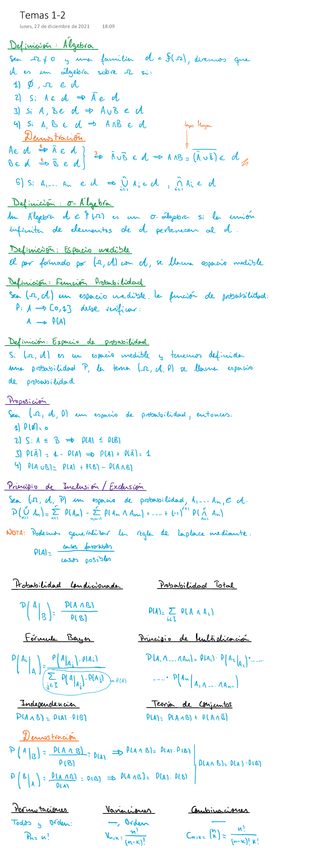 Temas 1-2
lunes, 27 de diciembre de 2021 18:09
Definición: Álgebra
Sea Ω ≠ ∅ y una familia 𝒜 ⊂ 𝒫(Ω), diremos que
𝒜 es un álgebra sobre Ω si:
1) ∅, Ω ∈ 𝒜
2) Si A ∈ 𝒜 ⇒ Ā ∈ 𝒜
3) Si A, B ∈ 𝒜 ⇒ A∪B ∈ 𝒜
4) Si A, B ∈ 𝒜 ⇒ A∩B ∈ 𝒜
Demostración
A ∈ 𝒜 ⇒ Ā ∈ 𝒜
B ∈ 𝒜 ⇒ B̄ ∈ 𝒜
Ā∪B̄ ∈ 𝒜 ⇒ A∩B = (Ā∪B̄) ∈ 𝒜
5) Si A₁, ... Aₙ ∈ 𝒜 ⇒ ∪ Aᵢ ∈ 𝒜, ∩ Aᵢ ∈ 𝒜
Definición: σ-Álgebra
Un Álgebra 𝒜 ⊂ 𝒫(Ω) es un σ-álgebra si la unión
infinita de elementos de 𝒜 pertenecen al 𝒜.
Definición: Espacio medible
El par formado por (Ω, 𝒜) con 𝒜, se llama espacio medible
Definición: Función Probabilidad
Sea (Ω, 𝒜) un espacio medible. La función de probabilidad:
P: A → [0,1] debe verificar:
A → P(A)
Definición: Espacio de probabilidad
Si (Ω, 𝒜) es un espacio medible y tenemos definida
una probabilidad P, la terna (Ω, 𝒜, P) se llama espacio
de probabilidad
Proposición
Sea (Ω, 𝒜, P) un espacio de probabilidad, entonces:
1) P(∅)=0
2) Si A ⊂ B ⇒ P(A) ≤ P(B)
3) P(Ā) = 1 - P(A) ⇒ P(A) + P(Ā) = 1
4) P(A∪B) = P(A) + P(B) - P(A∩B)
Principio de Inclusión / Exclusión
Sea (Ω, 𝒜, P) un espacio de probabilidad, A₁, ... Aₙ ∈ 𝒜:
NOTA: Podemos generalizar la regla de Laplace mediante:
P(A) = casos favorables
casos posibles
Probabilidad Condicionada Probabilidad Total
P(A|B) = P(A∩B) / P(B) P(A) = Σ P(A∩Aᵢ)
Fórmula Bayes Principio de Multiplicación
Independencia Teoría de Conjuntos
P(A∩B) = P(A)·P(B) P(A) = P(A∩B) + P(A∩B̄)
Demostración
P(A|B) = P(A∩B) / P(B) = P(A) ⇒ P(A∩B) = P(A)·P(B)
P(B|A) = P(A∩B) / P(A) = P(B) ⇒ P(A∩B) = P(A)·P(B)
P(A∩B) = P(A)·P(B)
Permutaciones Variaciones Combinaciones
Todos y Orden: Orden:
Pₙ = n! Vₘ,ₙ = n! / (n-k)! Cₘ,ₙ = (n k) = n! / (n-k)! k!